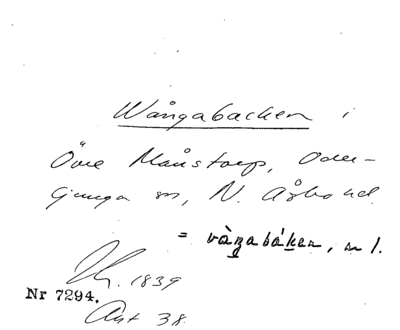 Wångabacken i
Övre Månstorp, Oder-
ljunga sn, N. Åsbo hd.
= vàŋabáken, m 1.
1839
Nr 7294.
Akt 38.